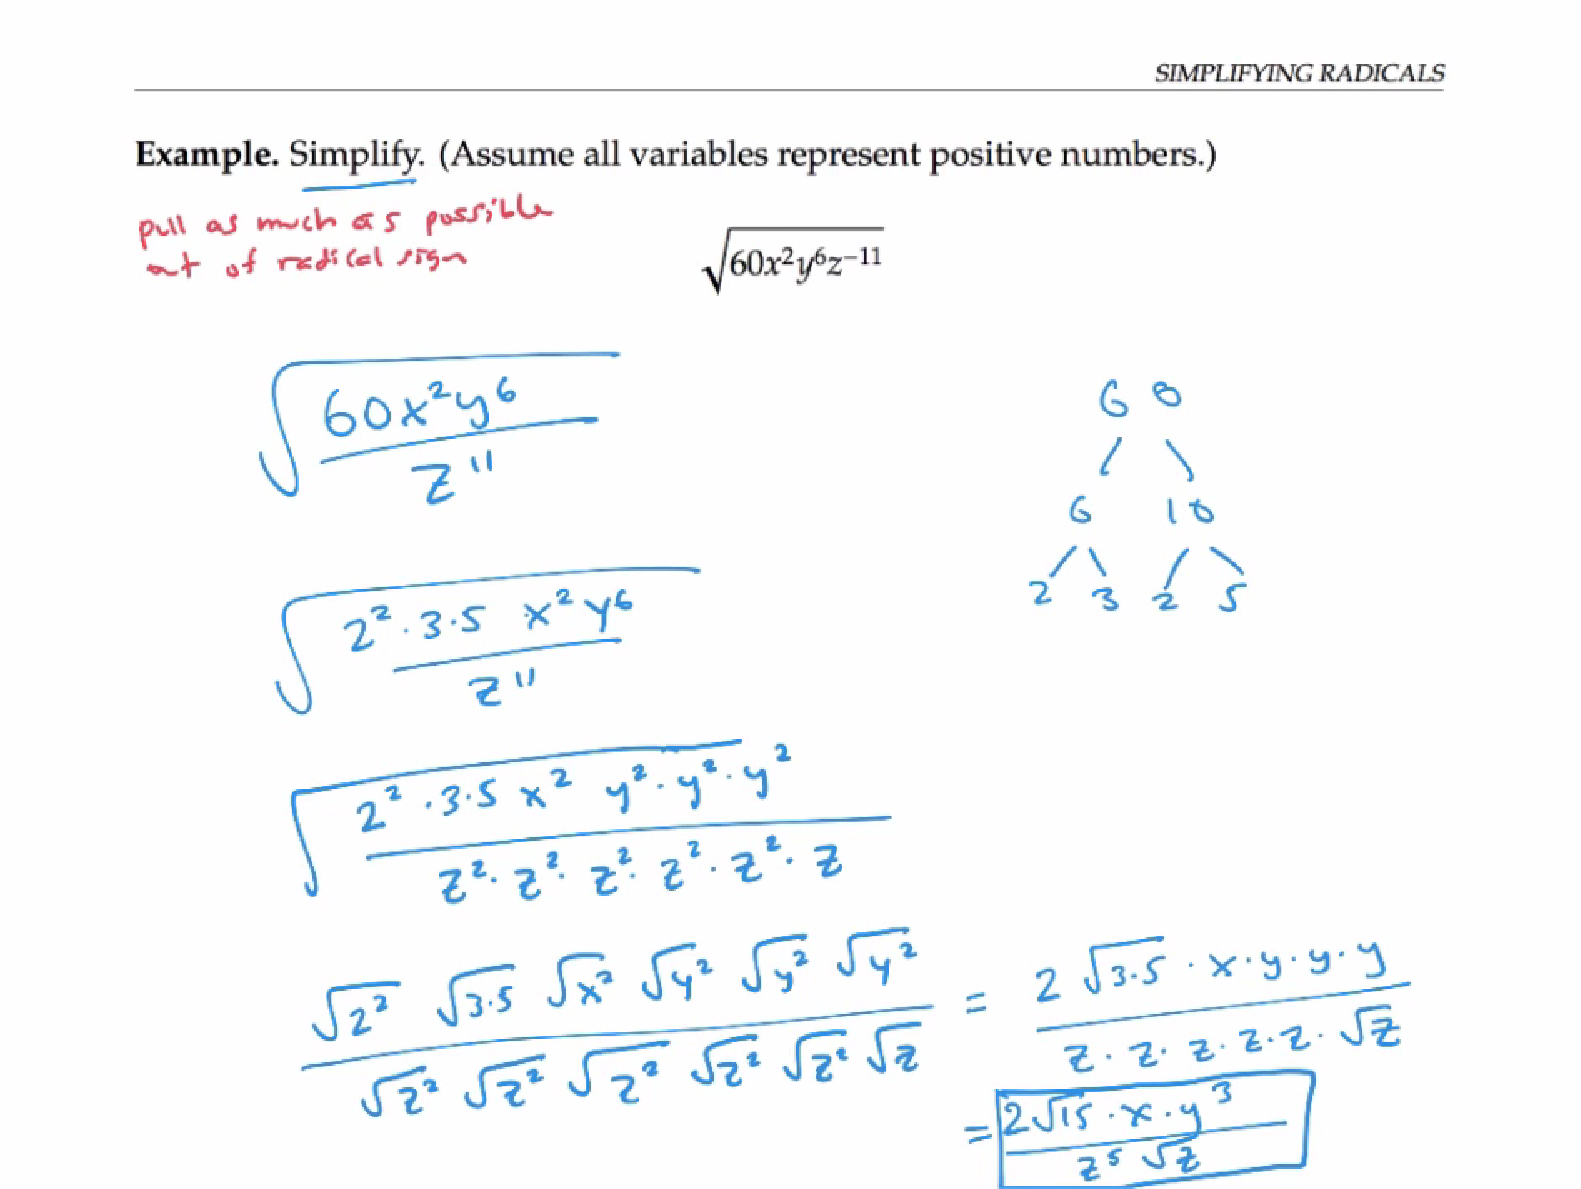 SIMPLIFYING RADICALS
Example. Simplify. (Assume all variables represent positive numbers.)
pull as much as possible
out of radical sign
√(60x²y⁶z⁻¹¹)
√(60x²y⁶ / z¹¹)
60
6 10
2 3 2 5
√(2²·3·5 x²y⁶ / z¹¹)
√(2²·3·5 x² y²·y²·y² / z²·z²·z²·z²·z²·z)
√2² √3·5 √x² √y² √y² √y² / √z² √z² √z² √z² √z² √z = 2√3·5·x·y·y·y / z·z·z·z·z·√z
= 2√15·x·y³ / z⁵√z